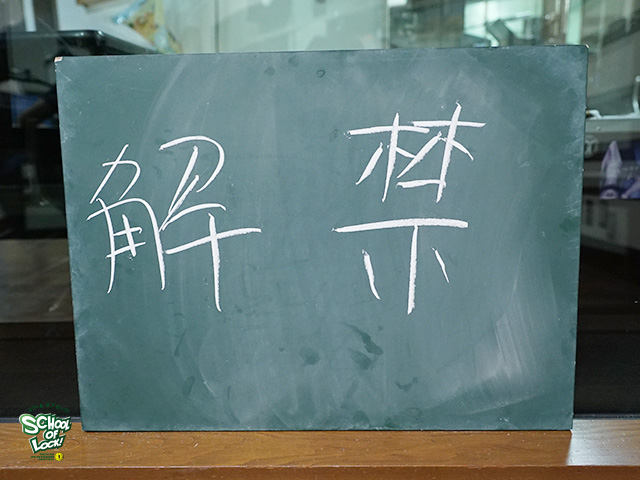 解禁
SCHOOL
OF
LOCK!